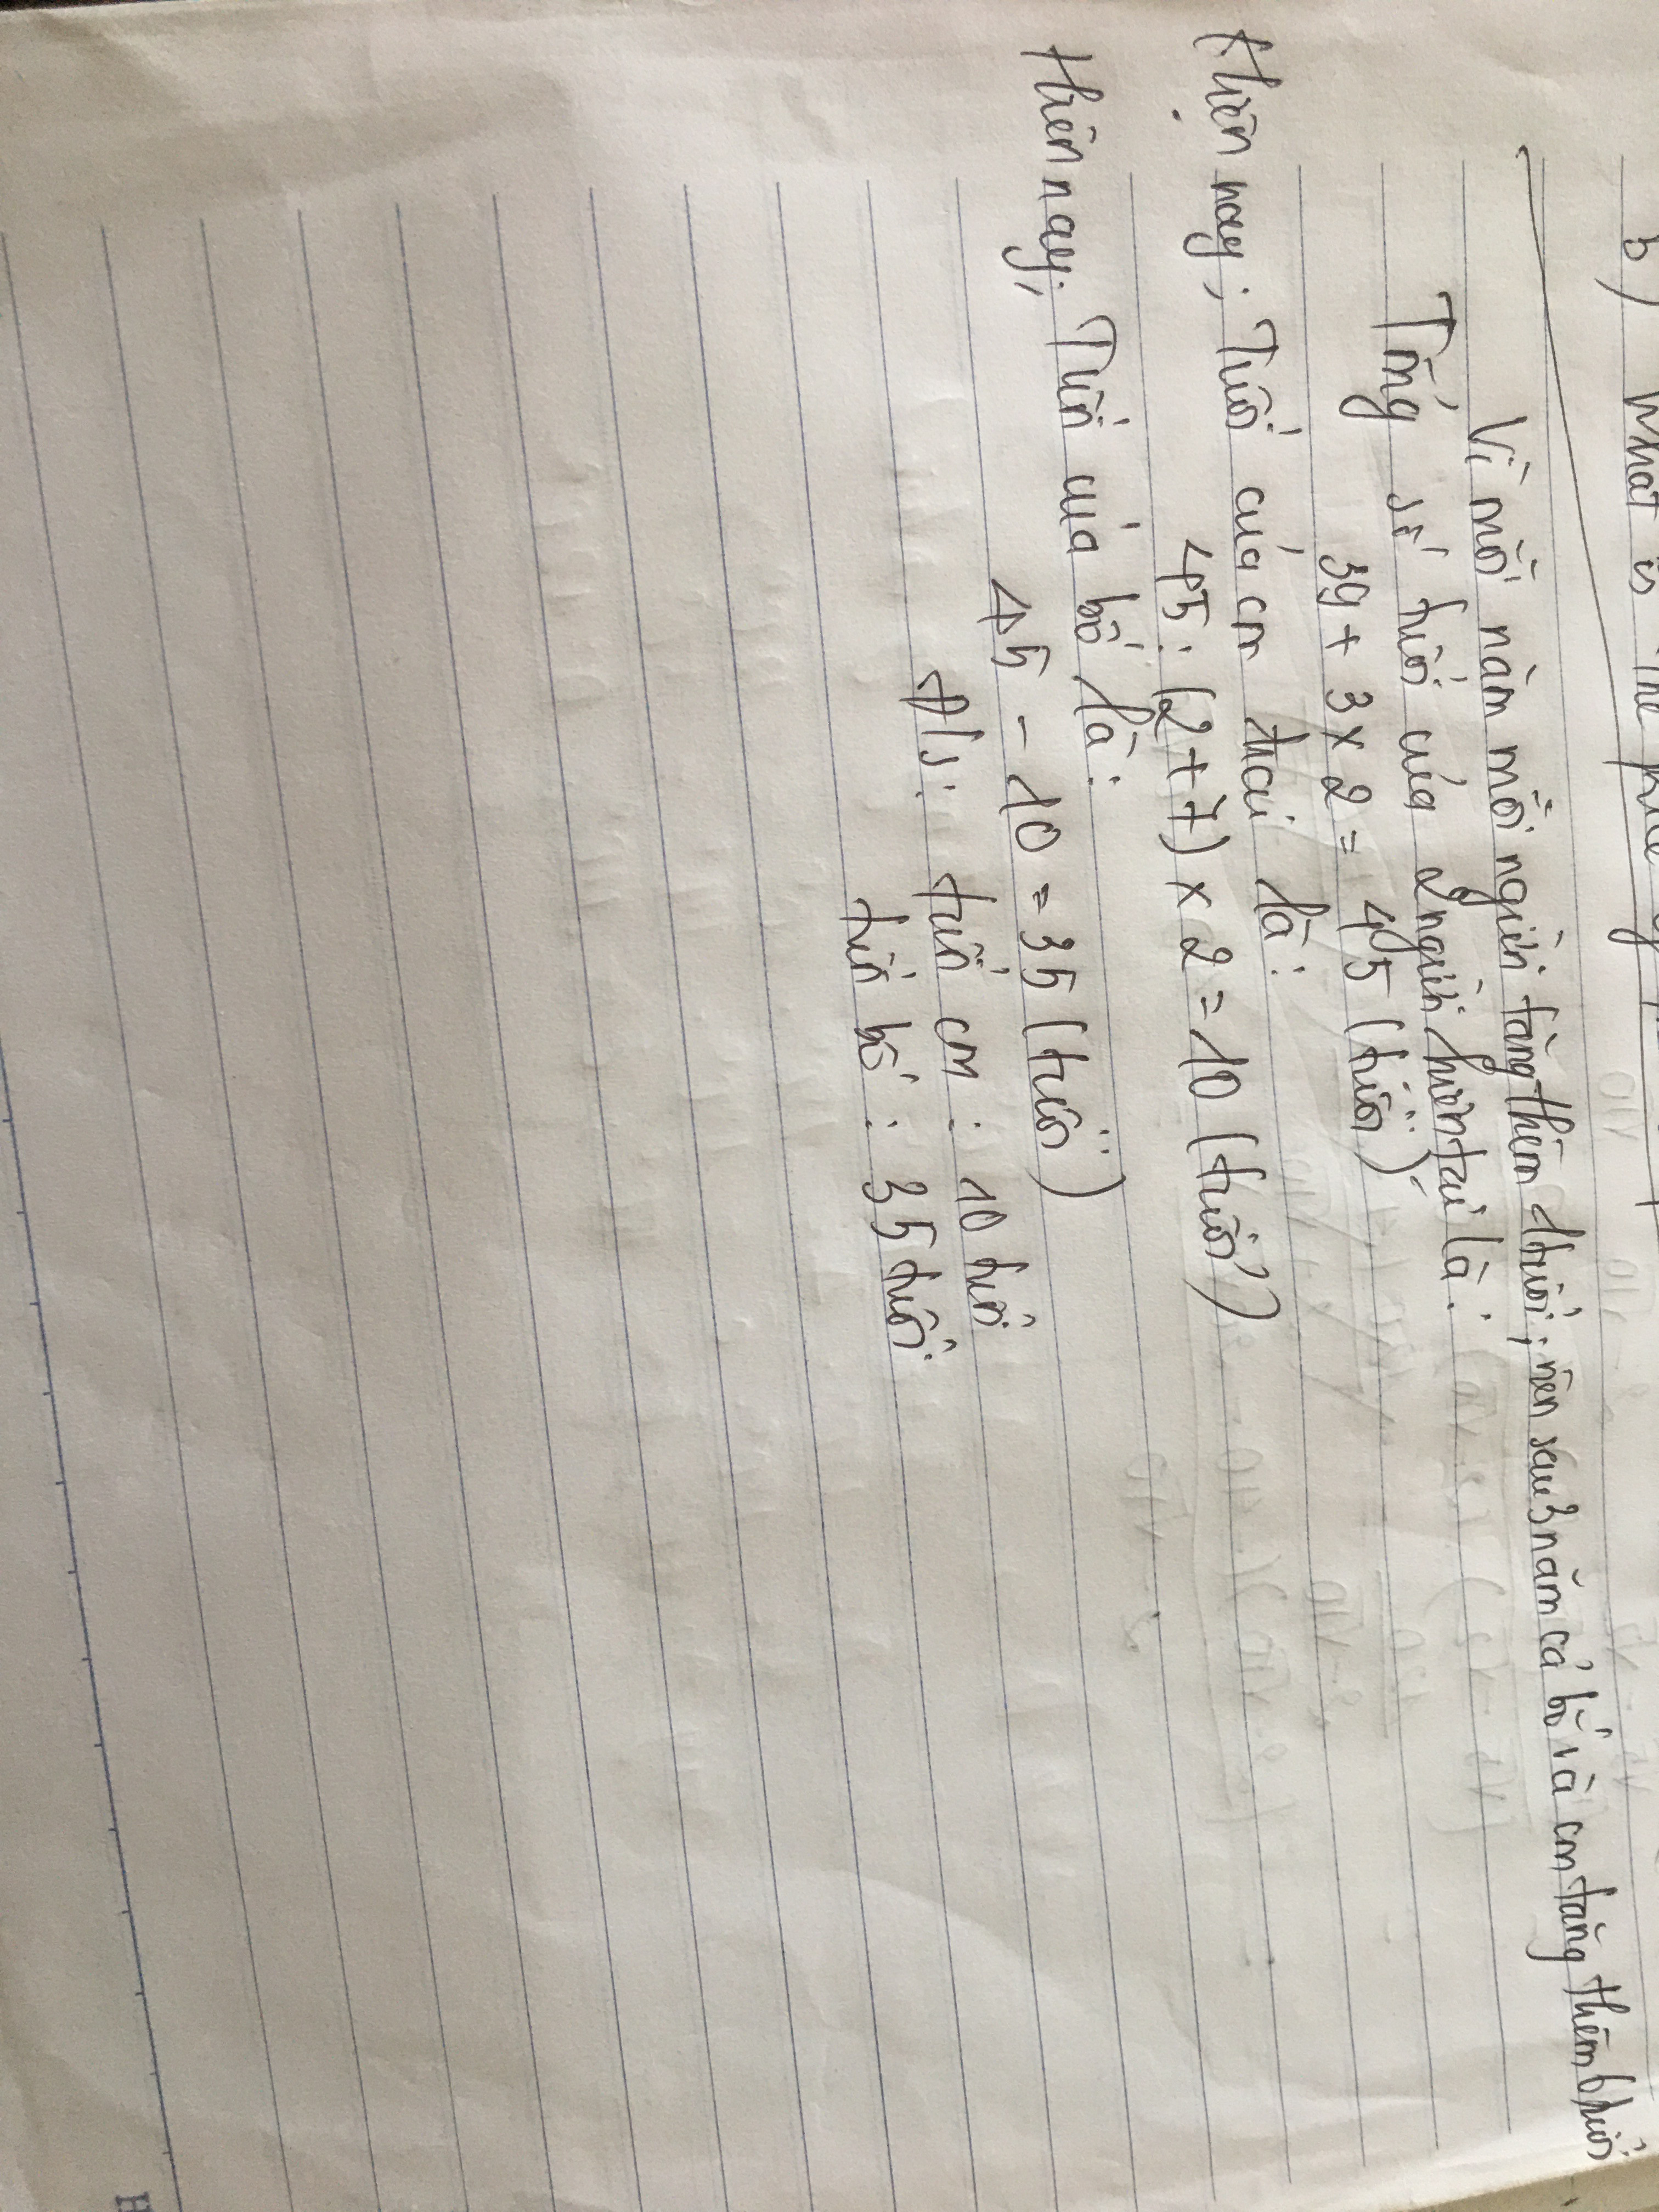 b) What is the
Vì mỗi năm mỗi người tăng thêm 1 tuổi; nên sau 3 năm cả bố và con tăng thêm 6 tuổi
Tổng số tuổi của 2 người hiện tại là:
39 + 3 x 2 = 45 (tuổi)
Hiện nay; Tuổi của con trai là:
45 : (2 + 7) x 2 = 10 (tuổi)
Hiện nay; Tuổi của bố là:
45 - 10 = 35 (tuổi)
Đ/s: tuổi con : 10 tuổi
tuổi bố : 35 tuổi
H